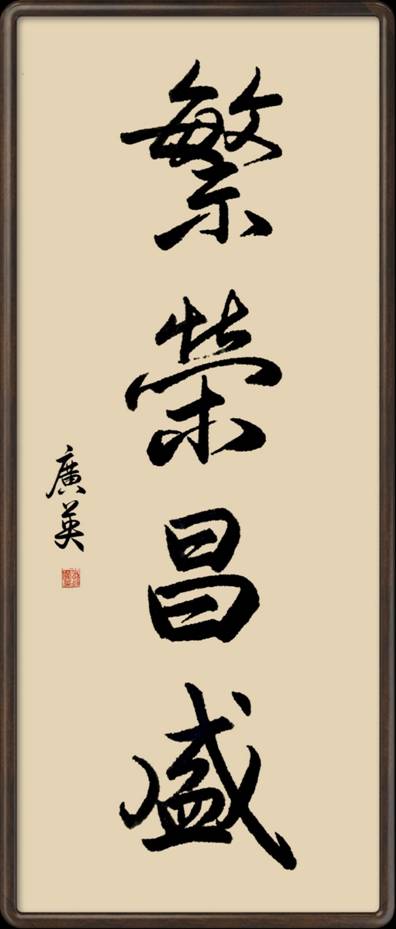 繁榮昌盛
廣英